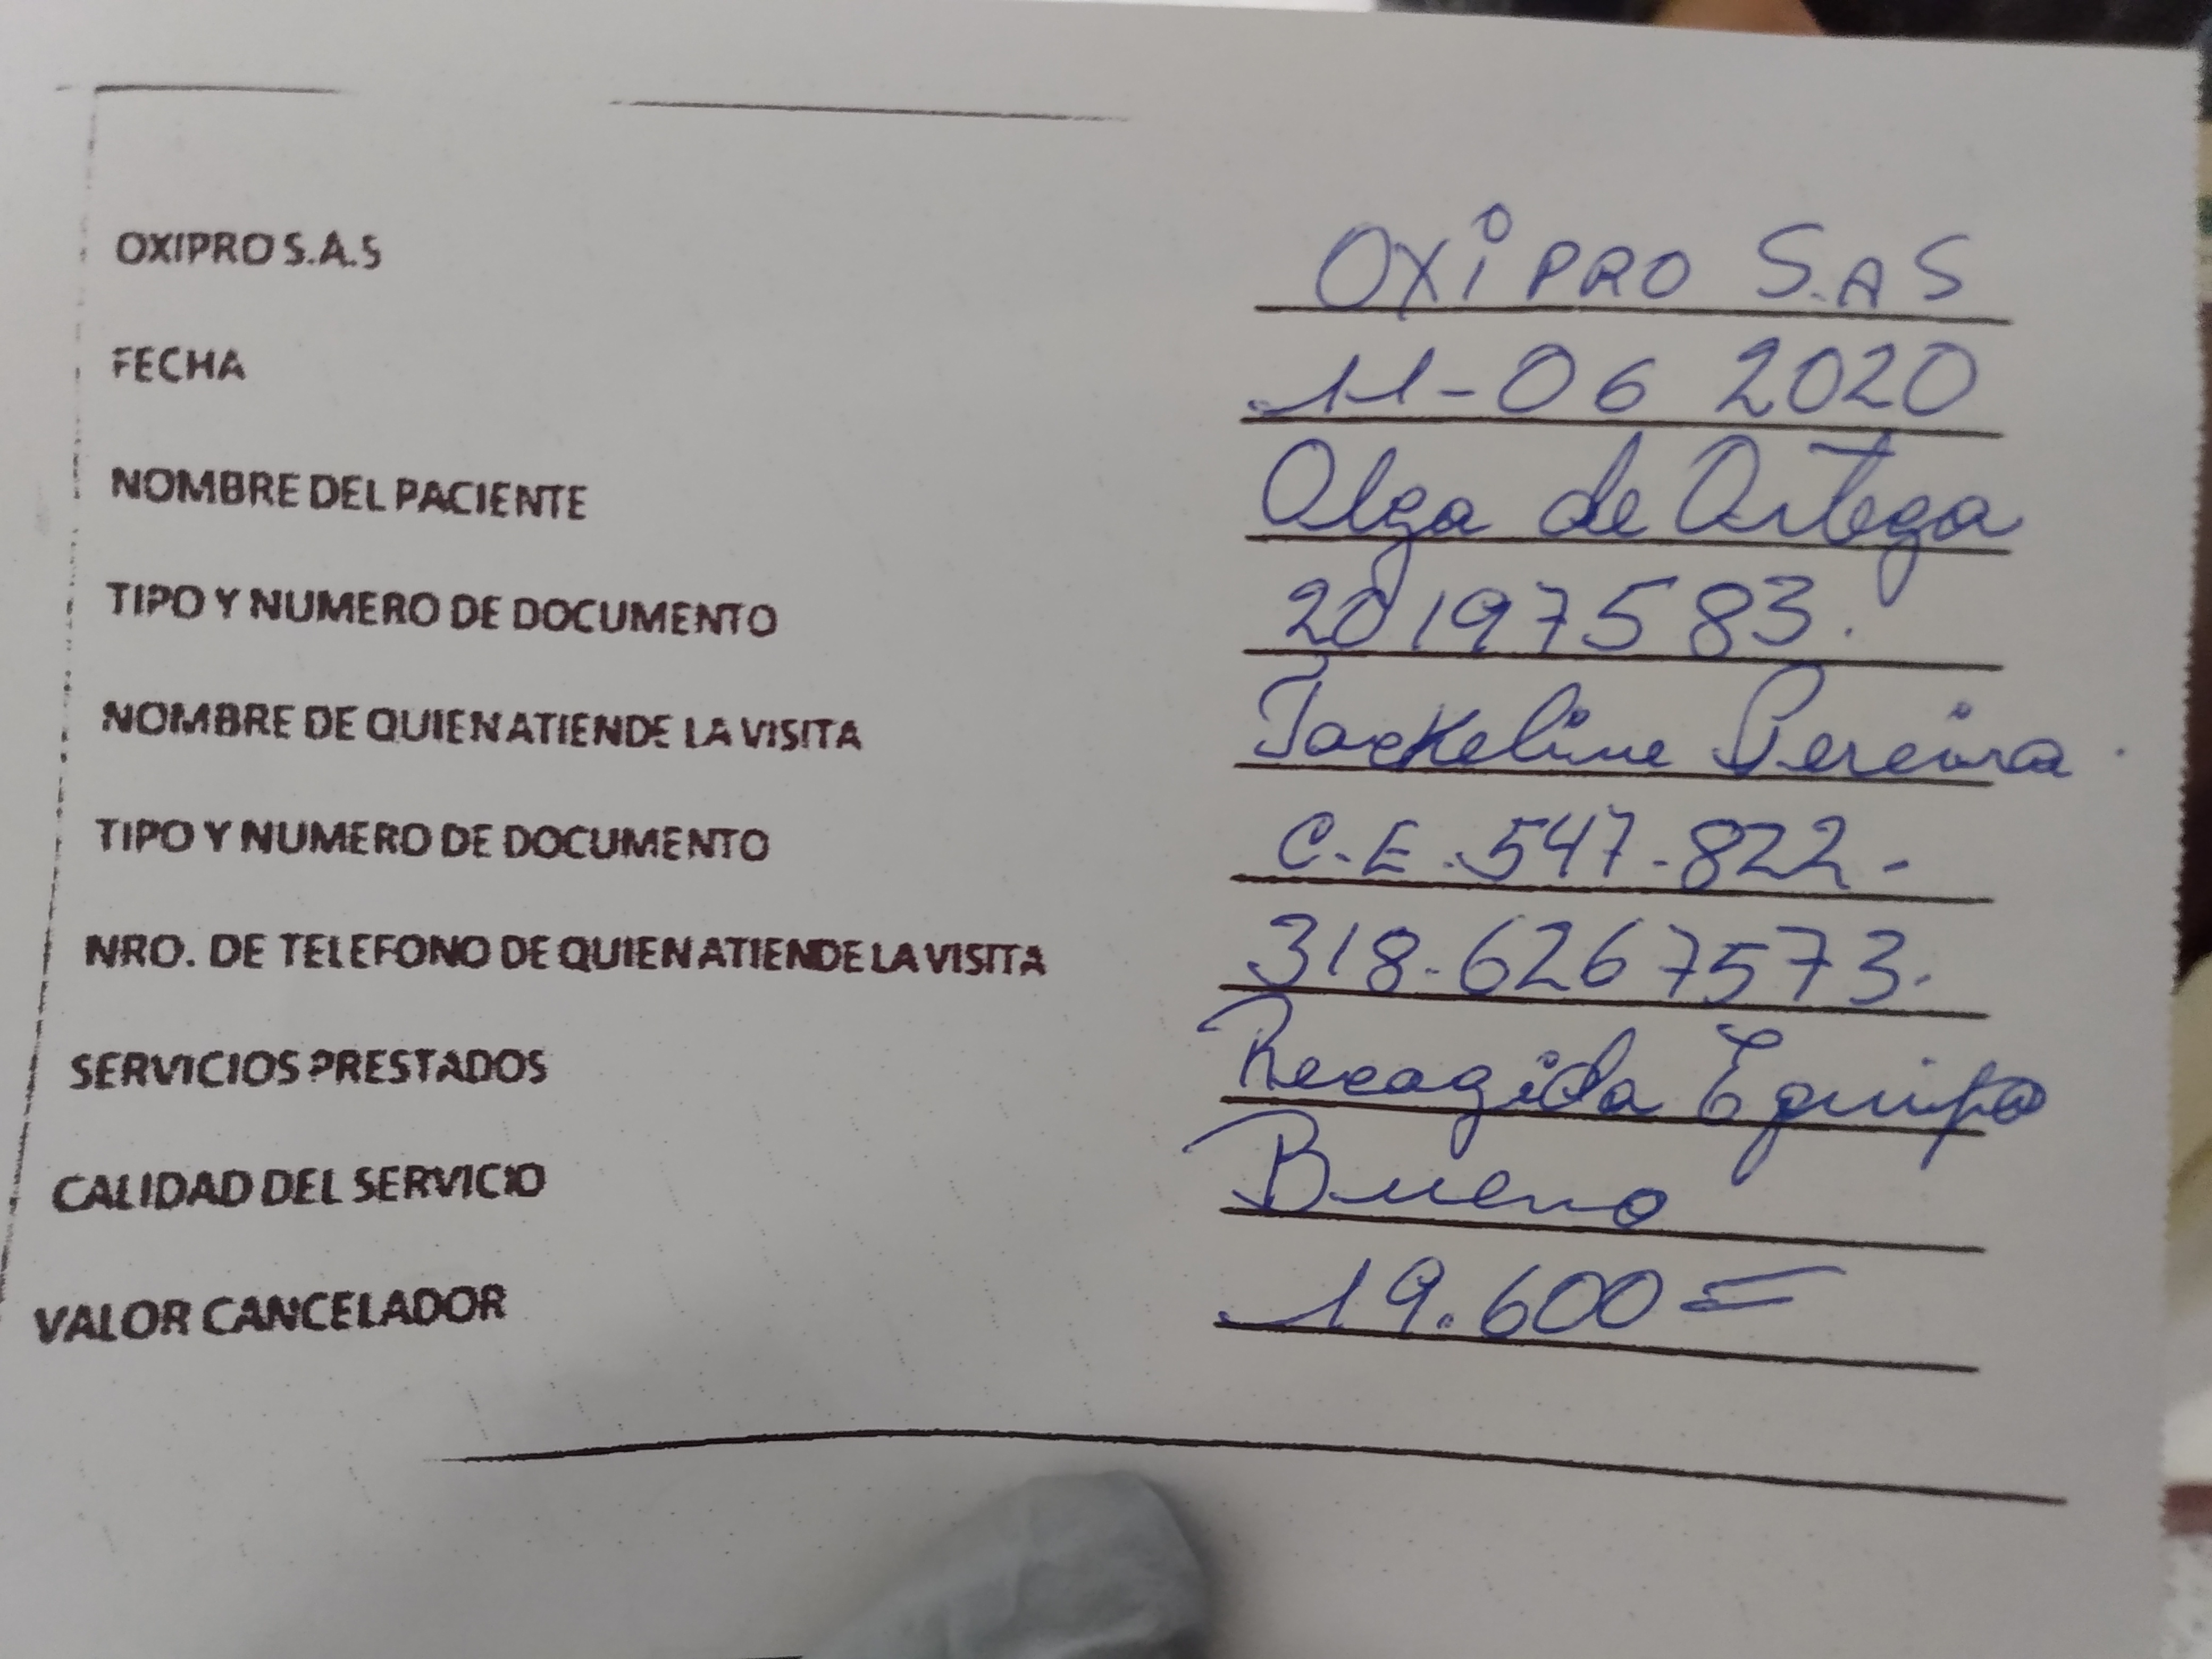 OXIPRO S.A.S OXiPRO S.AS
FECHA 11-06 2020
NOMBRE DEL PACIENTE Olga de Ortega
TIPO Y NUMERO DE DOCUMENTO 20197583.
NOMBRE DE QUIEN ATIENDE LA VISITA Jackeline Pereira.
TIPO Y NUMERO DE DOCUMENTO C.E.547.822-
NRO. DE TELEFONO DE QUIEN ATIENDE LA VISITA 318.6267573.
SERVICIOS PRESTADOS Recogida Equipo
CALIDAD DEL SERVICIO Bueno
VALOR CANCELADOR 19.600=